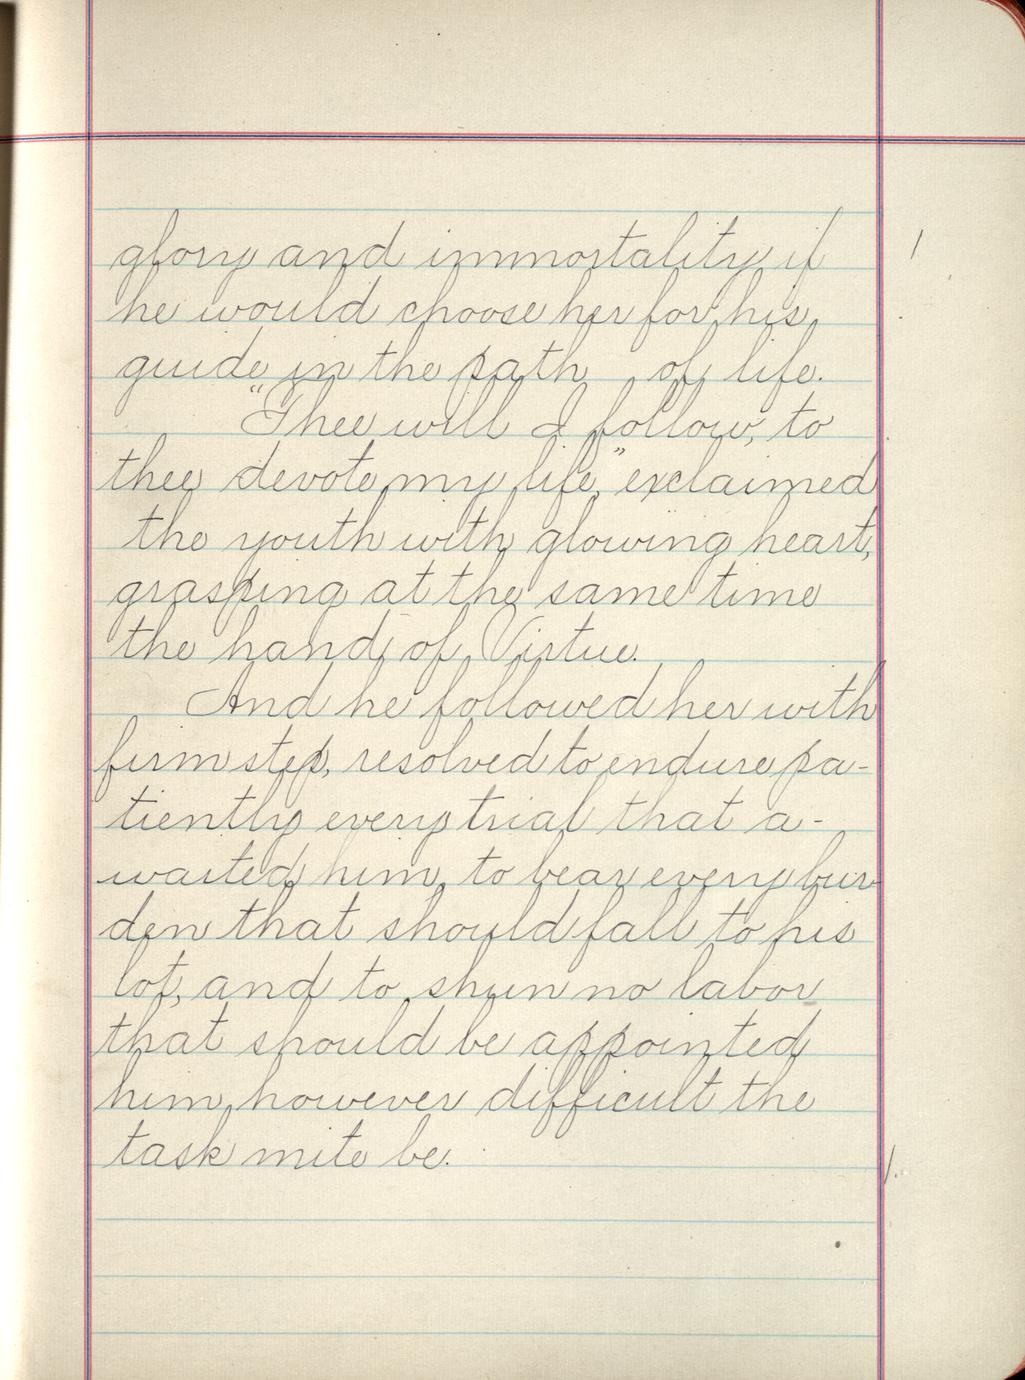 glory and immortality if
he would choose her for his
guide in the path of life.
"Thee will I follow, to
thee devote my life," exclaimed
the youth with glowing heart,
grasping at the same time
the hand of Virtue.
And he followed her with
firm step, resolved to endure pa-
tiently every trial that a-
waited him, to bear every bur
den that should fall to his
lot, and to shun no labor
that should be appointed
him, however difficult the
task mite be.